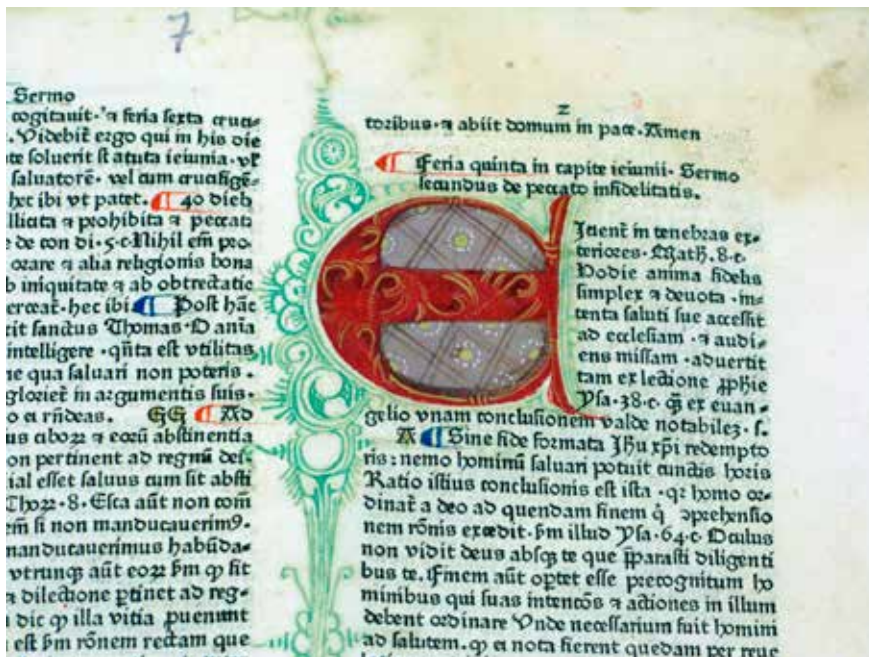 7
Sermo
cogitauit·ꝛ feria sexta cruci-
. Videbit̄ ergo qui in his die
te soluerit statuta ieiunia· vł
saluatorē· vel cum crucifigē-
hec ibi vt patet. 40 dieb
llicita ꝛ prohibita ꝛ peccata
e de con di·5·c·Nihil em̄ pro
orare ꝛ alia religionis bona
b iniquitate ꝛ ab obtrectatiō
erceat̄·hec ibi Post hāc
cit sanctus Thomas·D ania
intelligere·qn̄ta est vtilitas
ne qua saluari non poteris.
gloriet̄ in argumentis suis·
o ei rn̄deas. GG Ad
us ciboꝝ ꝛ eorū abstinentia
on pertinent ad regnū dei·
ial esset saluus cum sit absti
Thoꝝ·8·Esca aūt non com̄
em̄ si non manducauerimꝰ·
manducauerimus habūda-
vtrunqꝫ aūt eoꝝ ẜm ꝙ fit
a dilectione ꝑtinet ad reg-
dic ꝙ illa vitia ꝓueniunt
est ẜm rōnem rectam que
2
toribus·ꝛ abiit domum in pace·Amen
Feria quinta in capite ieiunii· Sermo
secundus de peccato infidelitatis.
EIicient̄ in tenebras ex-
teriores·Math̄.8·c·
Hodie anima fidelis
simplex ꝛ deuota·in-
tenta saluti sue accessit
ad ecclesiam·ꝛ audi-
ens missam·aduertit
tam ex lectione ꝓphie
Ysa·38·c·ꝙ̄ ex euan-
gelio vnam conclusionem valde notabileꝫ·ſ.
A Sine fide formata Jhu xp̄i redempto
ris: nemo hominū saluari potuit cunctis horis
Ratio istius conclusionis est ista·qꝛ homo or-
dinat̄ a deo ad quendam finem q̇ ꝯprehensio
nem rōnis excedit·ẜm illud Ysa·64·c·Oculus
non vidit deus absqꝫ te que p̄parasti diligenti
bus te. Finem aūt oꝑtet esse precognitum ho
minibus qui suas intencōs ꝛ actiones in illum
debent ordinare Vnde necessarium fuit homini
ad salutem·ꝙ ei nota fierent quedam per reue